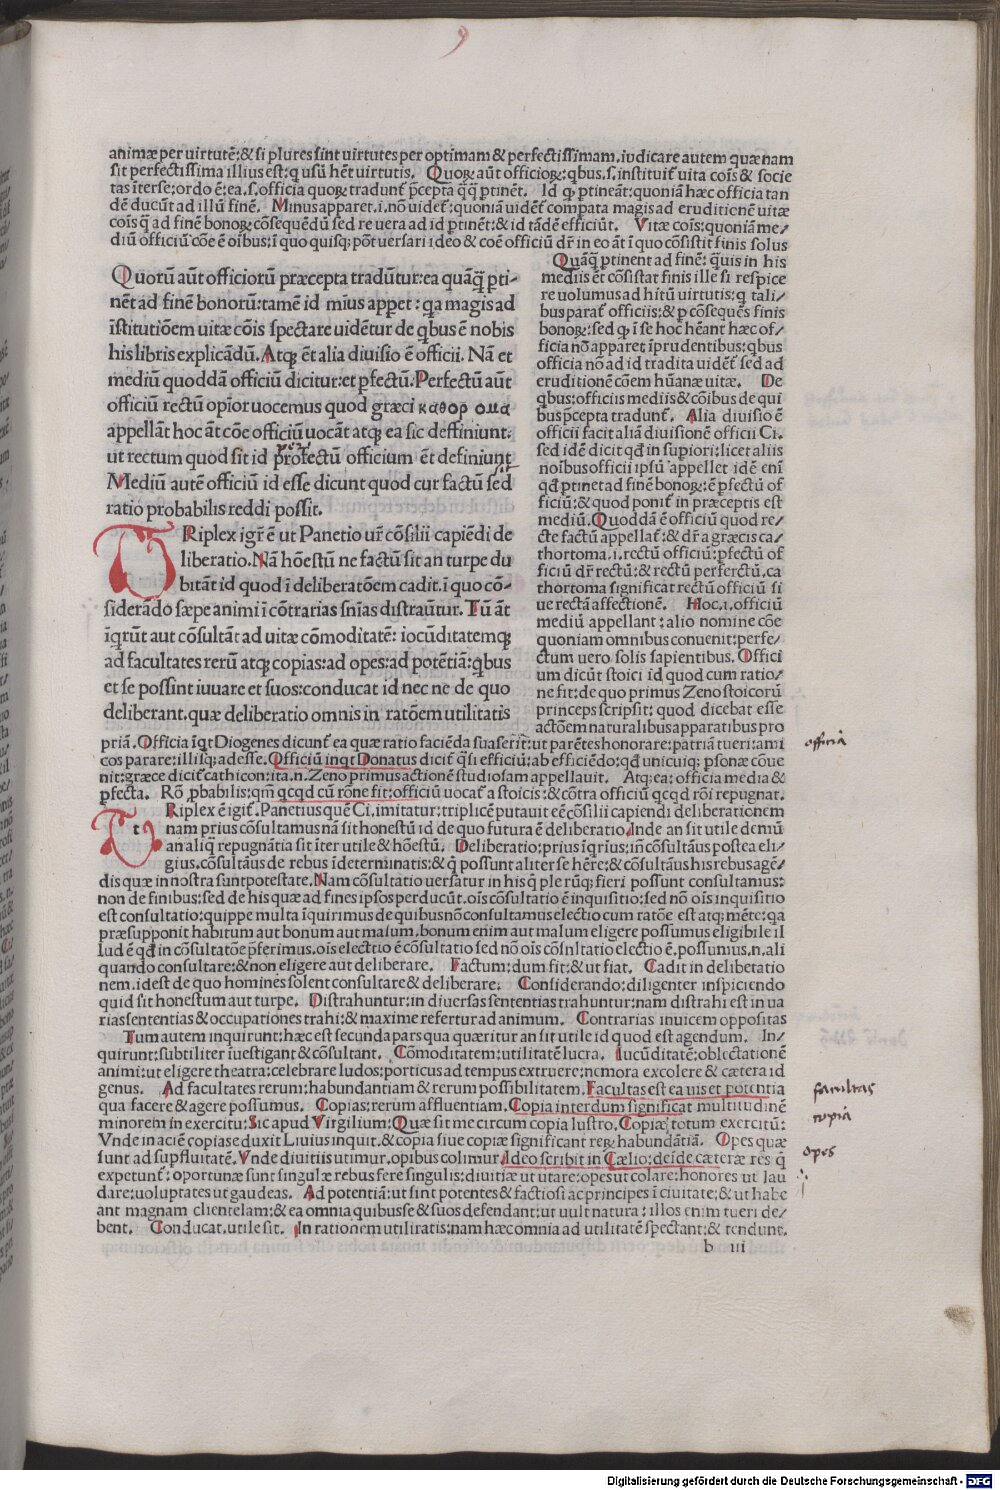 9
animæ per uirtutē: & si plures sint uirtutes per optimam & perfectissimam, iudicare autem quæ nam
sit perfectissima illius est: q usū hēt uirtutis. Quoꝝ aūt officioꝝ: qbus .s. instituit uita cōis & socie
tas īterse: ordo ē: ea .s. officia quoꝝ tradunt p̄cepta q̄q̄ ptinēt. Id qꝫ ptineāt: quoniā hæc officia tan
dē ducūt ad illū finē. Minus apparet .i. nō uidet: quoniā uidēt cōmpata magis ad eruditionē uitæ
cōis q̄ ad finē bonoꝝ cōsequēdū sed re uera ad id ptinēt: & id tādē efficiūt. Vitæ cōis: quoniā me/
diū officiū cōe ē oībus: ī quo quisqꝫ pōt uersari ideo & coē officiū dr̄ in eo āt ī quo cōsistit finis solus
Quorū aūt officiorū præcepta tradūtur: ea quāq̄ pti-
nēt ad finē bonorū: tamē id mīus appet: qa magis ad
īstitutiōem uitæ cōis spectare uidētur de qbus ē nobis
his libris explicādū. Atqꝫ ēt alia diuisio ē officii. Nā et
mediū quoddā officiū dicitur: et pfectū. Perfectū aūt
officiū rectū opīor uocemus quod græci καθορ ομα
appellāt hoc āt cōe officiū uocāt atqꝫ ea sic deffiniunt.
ut rectum quod sit id profectū officium ēt definiunt
Mediū autē officiū id esse dicunt quod cur factū sed
ratio probabilis reddi possit.
TRiplex igr̄ ē ut Panetio ur̄ cōsilii capiēdi de
liberatio. Nā hōestū ne factū sit an turpe du
bitāt id quod ī deliberatōem cadit. ī quo cō-
siderādo sæpe animi ī cōtrarias snīas distraūtur. Tū āt
īqrūt aut cōsultāt ad uitæ cōmoditatē: iocūditatemqꝫ
ad facultates rerū atqꝫ copias: ad opes: ad potētiā: qbus
et se possint iuuare et suos: conducat id nec ne de quo
deliberant. quæ deliberatio omnis in ratōem utilitatis
Quāq̄ ptinent ad finē: q̄uis in his
mediis ēt cōsistat finis ille si respice
re uolumus ad hītū uirtutis: q tali/
bus parat officiis: & p cōsequēs finis
bonoꝝ: sed qꝫ ī se hoc hēant hæc of/
ficia nō apparet īprudentibus: qbus
officia nō ad id tradita uidēt sed ad
eruditionē cōem hūanæ uitæ. De
qbus: officiis mediis & cōibus de qui
bus p̄cepta tradunt. Alia diuisio ē
officii facit aliā diuisionē officii Ci.
sed idē dicit qd in supiori: licet aliis
noībus officii ipsū appellet idē enī
qd ptinet ad finē bonoꝝ: ē pfectū of
ficiū: & quod ponit in præceptis est
mediū. Quoddā ē officiū quod re/
cte factū appellat: & dr̄ a græcis ca/
thortoma .i. rectū officiū: pfectū of
ficiū dr̄ rectū: & rectū perferctū, ca
thortoma significat rectū officiū si
ue rectā affectionē. Hoc .i. officiū
mediū appellant: alio nomine cōe
quoniam omnibus conuenit: perfe/
ctum uero solis sapientibus. Offici
um dicūt stoici id quod cum ratio/
ne fit: de quo primus Zeno stoicorū
princeps scripsit: quod dicebat esse
actōem naturalibus apparatibus pro
priā. Officia īqt Diogenes dicunt ea quæ ratio faciēda suaserit: ut parētes honorare: patriā tueri: ami
cos parare: illisqꝫ adesse. Officiū inqt Donatus dicit q̄si efficiū: ab efficiēdo: qd unicuiqꝫ psonæ cōue
nit: græce dicit cathicon: ita .n. Zeno primus actionē studiosam appellauit. Atqꝫ ea: officia media &
pfecta. Rō pbabilis: qm̄ qcqd cū rōne fit: officiū uocat a stoicis: & cōtra officiū qcqd rōi repugnat.
TRiplex ē igit. Panetius quē Ci. imitatur: triplicē putauit eē cōsilii capiendi deliberationem
nam prius cōsultamus nā sit honestū id de quo futura ē deliberatio. Inde an sit utile demū
an aliq̄ repugnātia sit īter utile & hōestū. Deliberatio: prius īqrius: in cōsultāus postea eli/
gius. cōsultāus de rebus īdeterminatis: & q̄ possunt aliter se hēre: & cōsultāus his rebus agē/
dis quæ in nostra sunt potestate. Nam cōsultatio uersatur in his q̄ pleruqꝫ fieri possunt consultamus:
non de finibus: sed de his quæ ad fines ipsos perducūt. oīs cōsultatio ē inquisitio: sed nō oīs inquisitio
est consultatio: quippe multa īquirimus de quibus nō consultamus electio cum ratōe est atqꝫ mēte: qa
præsupponit habitum aut bonum aut malum. bonum enim aut malum eligere possumus eligibile il
lud ē qd in cōsultatōe p̄ferimus. oīs electio ē cōsultatio sed nō oīs cōsultatio electio ē. possumus .n. ali
quando consultare: & non eligere aut deliberare. Factum: dum fit: & ut fiat. Cadit in deliberatio
nem. id est de quo homines solent consultare & deliberare. Considerando: diligenter inspiciendo
quid sit honestum aut turpe. Distrahuntur: in diuersas sententias trahuntur: nam distrahi est in ua
rias sententias & occupationes trahi: & maxime refertur ad animum. Contrarias inuicem oppositas
Tum autem inquirunt: hæc est secunda pars qua quæritur an sit utile id quod est agendum. In/
quirunt: subtiliter īuestigant & cōsultant. Cōmoditatem: utilitatē lucra. Iucūditatē: oblectationē
animi: ut eligere theatra: celebrare ludos: porticus ad tempus extruere: nemora excolere & cætera id
genus. Ad facultates rerum: habundantiam & rerum possibilitatem. Facultas est ea uis et potentia
qua facere & agere possumus. Copias: rerum affluentiam. Copia interdum significat multitudinē
minorem in exercitu: Sic apud Virgilium: Quæ sit me circum copia lustro. Copiæ totum exercitū:
Vnde in aciē copias eduxit Liuius inquit. & copia siue copiæ significant reꝝ habundātiā. Opes quæ
sunt ad supfluitatē. Vnde diuitiis utimur. opibus colimur. Ideo scribit in Cælio: deīde cæteræ res q̄
expetunt: oportunæ sunt singulæ rebus fere singulis: diuitiæ ut utare: opes ut colare: honores ut lau
dare: uoluptates ut gaudeas. Ad potentiā: ut sint potentes & factiosi ac principes ī ciuitate: & ut habe
ant magnam clientelam: & ea omnia quibus se & suos defendant: ut uult natura: illos enim tueri de/
bent. Conducat. utile sit. In rationem utiliratis: nam hæc omnia ad utilitatē spectant: & tendunt.
b iii
officia
facultas
copia
opes
Digitalisierung gefördert durch die Deutsche Forschungsgemeinschaft - DFG